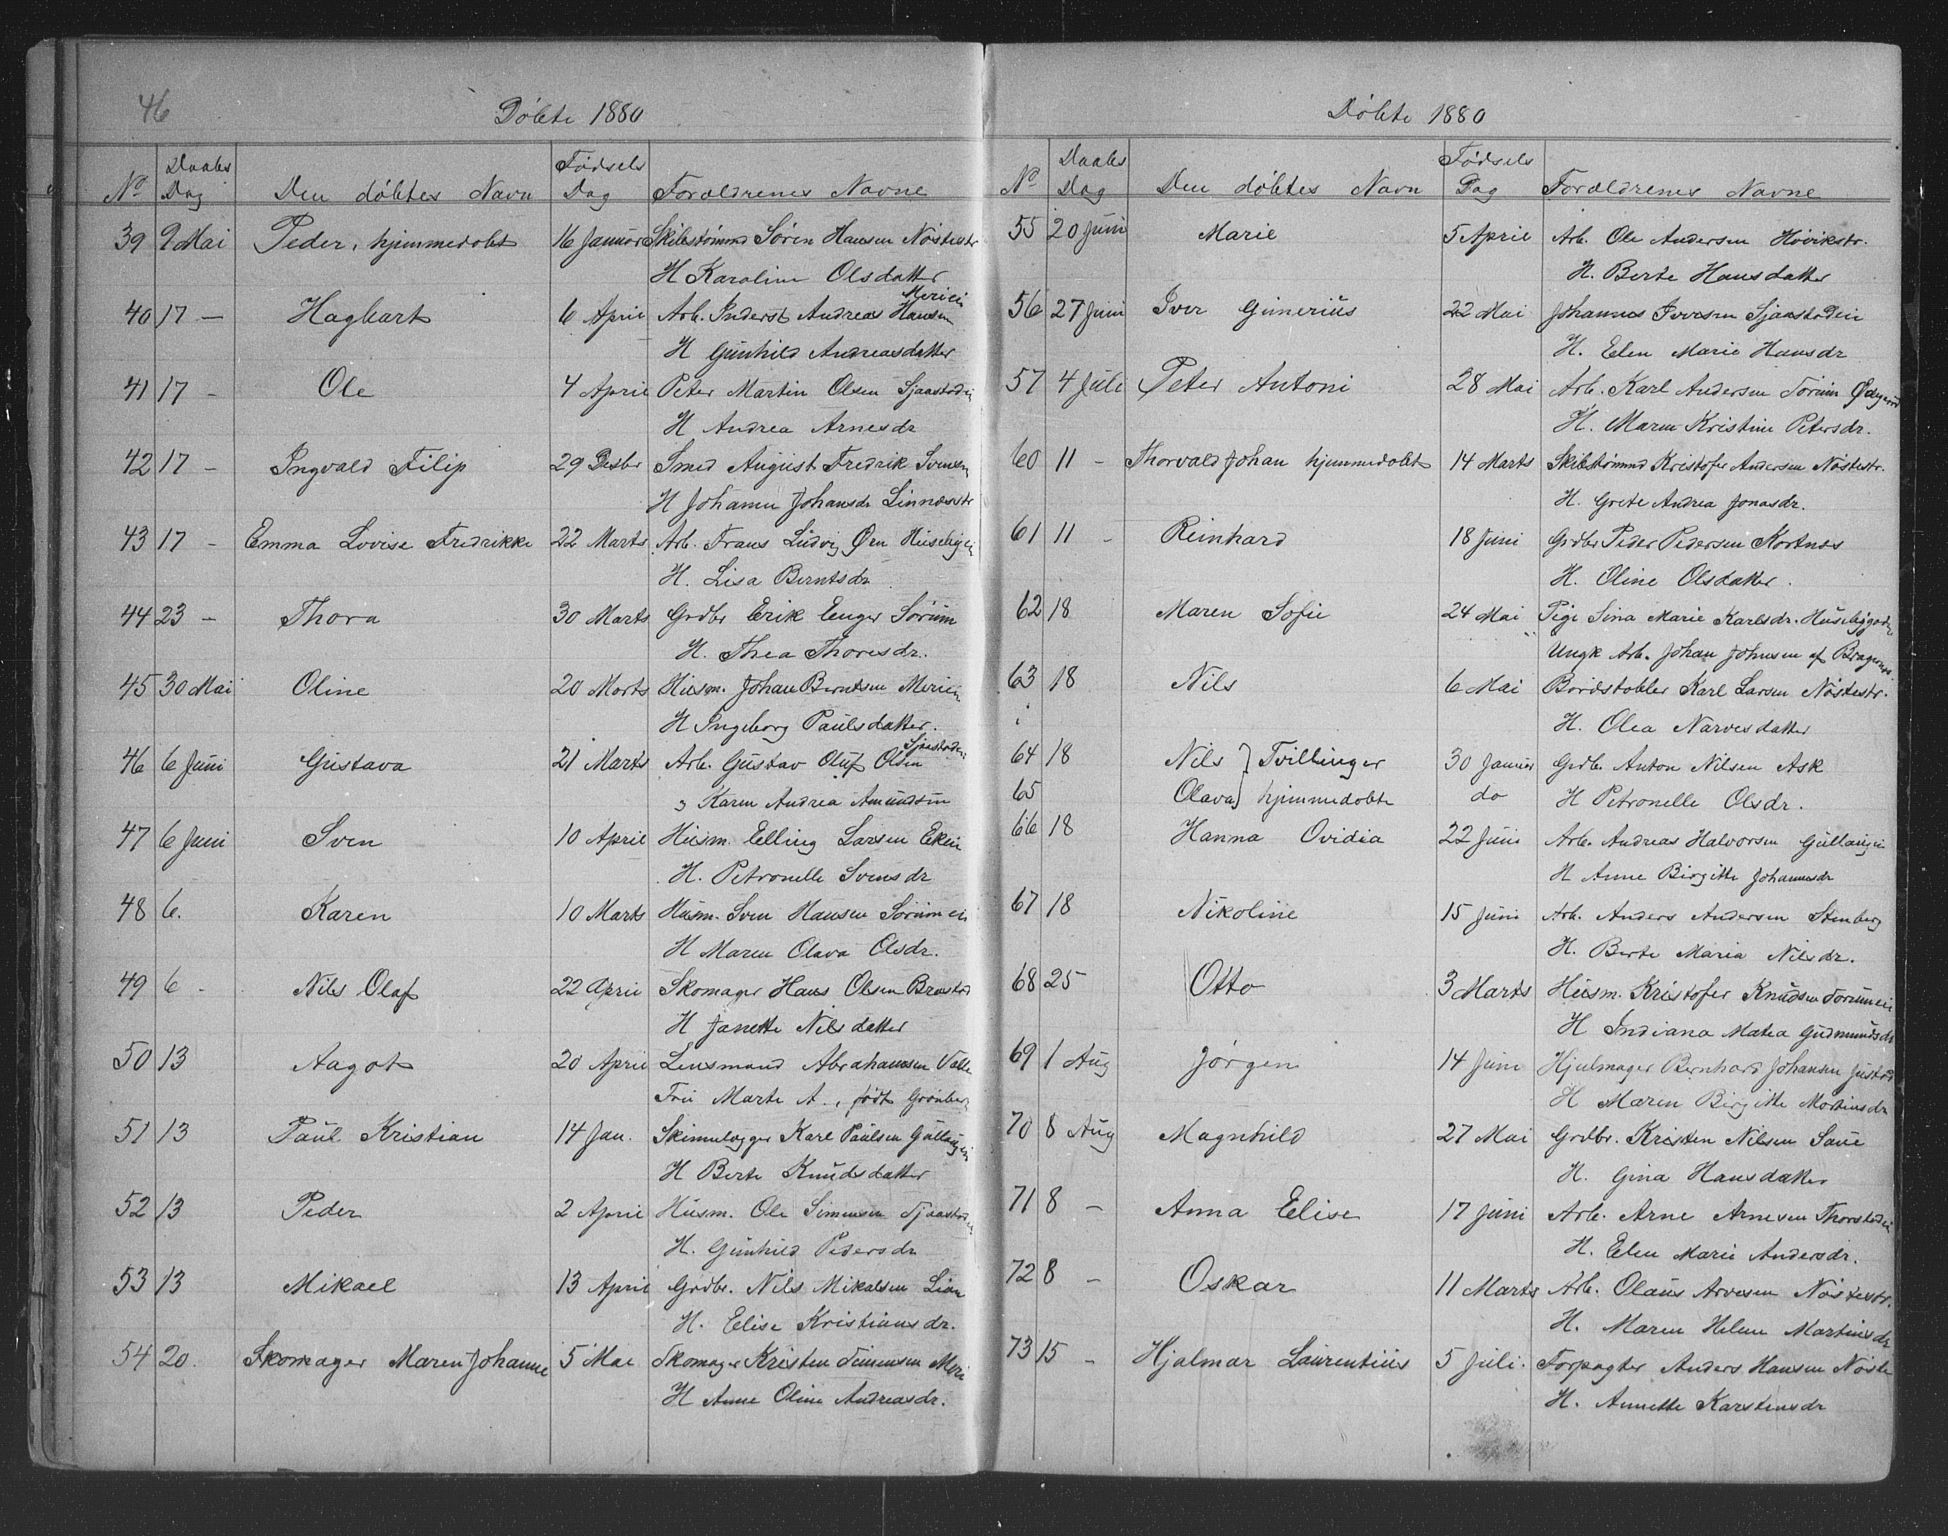 46
Döbte 1880
No Daabs Dag Den döbtes Navn Fødsels Dag Forældrenes Navne
39 9 Mai Peder, hjemmedøbt 16 Januar Skibstømmd Søren Hansen Nøstestr
H Karoline Olsdatter
Merien
40 17 — Hagbart 6 April Arb. Inderst Andreas Hansen
H Gunhild Andreasdatter
41 17 - Ole 4 April Peter Martin Olsen Sjaastaden
H Andrea Arnesdr
42 17 - Ingvald Filip 29 Desbr Smed August Fredrik Svensen
H Johanne Johansdr Linnæsstr
43 17 - Emma Lovise Fredrikke 22 Marts Arb. Frans Ludvig Ørn Husebyen
H. Lisa Berntsdr
44 23 - Thora 30 Marts Grdbr Erik Enger Sørum
H. Thea Thoresdr.
45 30 Mai Oline 20 Marts Husm. Johan Berntsen Merien
H Ingeborg Paulsdatter.
Sjaastaden
46 6 Juni Gustava 21 Marts Arb. Gustav Oluf Olsen
Karen Andrea Amundsen
47 6 Juni Sven 10 April Husm. Elling Larsen Eken
H. Petronelle Svensdr
48 6. Karen 10 Marts Husm. Sven Hansen Sørumei
H Maren Olava Olsdr.
49 6 - Nils Olaf 22 April Skomager Hans Olsen Brastad
H Janette Nilsdatter
50 13 Aagot 20 April Lensmand Abrahamsen Valle
Fru Marte A., født Grønberg
51 13 Paul Kristian 14 Jan. Skinnelægger Karl Paulsen Gullaugen
H Berte Knudsdatter
52 13 Peder 2 April Husm. Ole Simensen Sjaastaden
H. Gunhild Pedersdr
53 13 Mikael 13 April Grdbr. Nils Mikalsen Lian
H. Elise Kristiansdr.
54 20. Skomager Maren Johanne 5 Mai Skomager Kristen Simensen Meri
H Anne Oline Andreasdr.
Döbte 1880
No Daabs Dag Den döbtes Navn Fødsels Dag Forældrenes Navne
55 20 Juni Marie 5 April Arb. Ole Andersen Høvikstr.
H. Berte Hansdatter
56 27 Juni Iver Gunerius 22 Mai Johannes Iversen Sjaastaden
H. Elen Marie Hansdr
57 4 Juli Peter Antoni 28 Mai Arb. Karl Andersen Sørum Ødegaard
H. Maren Kristine Petersdr.
60 11 - Thorvald Johan hjemmedøbt 14 Marts Skibstømmd Kristofer Andersen Nøstestr.
H. Grete Andrea Jonasdr.
61 11 - Reinhard 18 Juni Grdbr Peder Pedersen Kortnæs
H. Oline Olsdatter.
62 18 Maren Sofie 24 Mai Pige Sina Marie Karlsdr. Husebygaden
Ungk Arb. Johan Johnsen af Bragernes
63 18 Nils 6 Mai Bordstabler Karl Larsen Nøstestr.
H. Olea Narvesdatter
64 18 Nils } Tvillinger 30 Januar Grdb. Anton Nilsen Ask
65 Olava } hjemmedøbte do H Petronelle Olsdr.
66 18 Hanna Ovidia 22 Juni Arb. Andreas Halvorsen Gullaugen
H Anne Birgitte Johannesdr
67 18 Nikoline 15 Juni Arb. Anders Andersen Stenberg
H. Berte Maria Nilsdr.
68 25 Otto 3 Marts Husm. Kristofer Knudsen Sørumei
H Indiana Matea Gudmundsdr
69 1 Aug Jörgen 14 Juni Hjulmager Bernhard Johansen Justad
H Maren Birgitte Mortensdr
70 8 Aug Magnhild 27 Mai Grdbr. Kristen Nilsen Saue
H. Gina Hansdatter
71 8 - Anna Elise 17 Juni Arb. Arne Arnesen Thorstaden
H. Elen Marie Andersdr.
72 8 - Oskar 11 Marts Arb. Olaus Arvesen Nöstestr.
H. Maren Helene Martinsdr
73 15 - Hjalmar Laurentius 5 Juli. Forpagter Anders Hansen Nöste
H. Annette Karstensdr